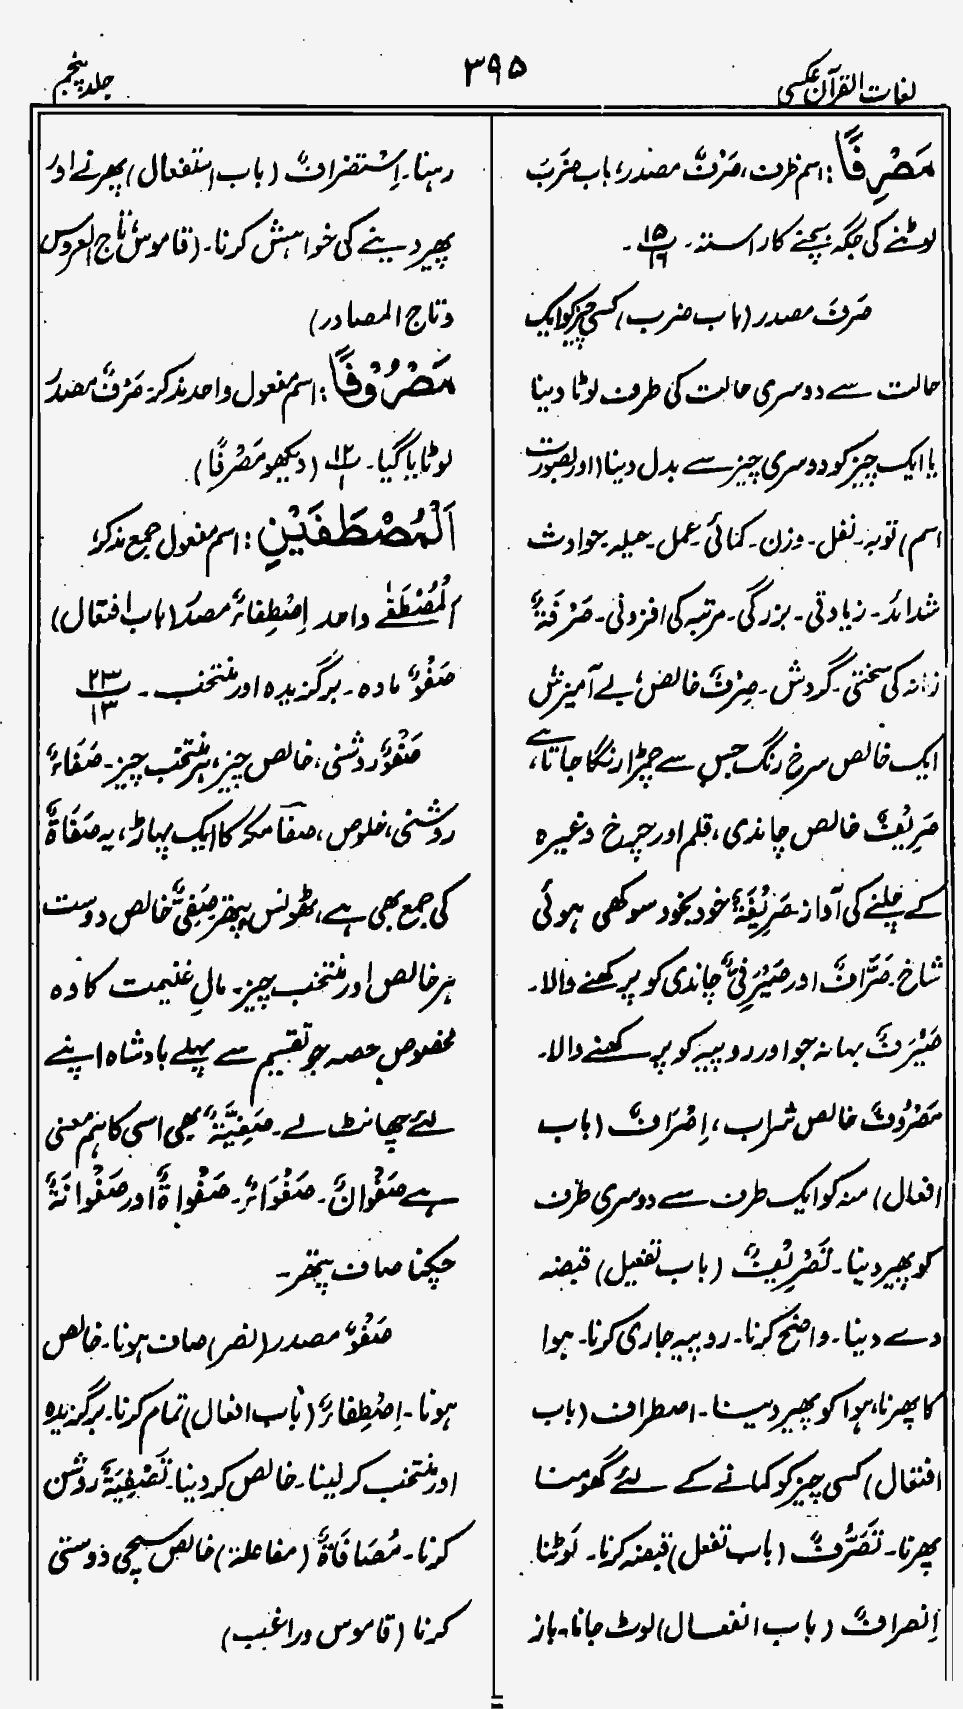 لغات القرآن عکسی
۳۹۵
جلد پنجم
مَصْرِفًا: اسم ظرف، صَرْفٌ مصدر، باب ضَرَبَ
لوٹنے کی جگہ بچنے کا راستہ۔ پ ۱۵/۱۹۔
صَرْفٌ مصدر (باب ضرب) کسی چیز کو ایک
حالت سے دوسری حالت کی طرف لوٹا دینا
یا ایک چیز کو دوسری چیز سے بدل دینا (اور بصورت
اسم) توبہ۔ نفل۔ وزن۔ کمائی۔ عمل۔ حیلہ۔ حوادث
شدائد۔ زیادتی۔ بزرگی۔ مرتبہ کی افزونی۔ صَرْفَةٌ
زمانہ کی سختی۔ گردش۔ صِرْفٌ خالص، بے آمیزش
ایک خالص سرخ رنگ جس سے چمڑا رنگا جاتا ہے،
صَرِیْفٌ خالص چاندی، قلم اور چرخ وغیرہ
کے چلنے کی آواز۔ صَرِیْفَةٌ خود بخود سوکھی ہوئی
شاخ۔ صَرَّافٌ اور صَیْرَفِیٌّ چاندی کو پرکھنے والا۔
صَیْرَفٌ بہانہ جو اور روپیہ کو پرکھنے والا۔
مَصْرُوْفٌ خالص شراب، اِصْرَافٌ (باب
افعال) منہ کو ایک طرف سے دوسری طرف
کو پھیر دینا۔ تَصْرِیْفٌ (باب تفعیل) قبضہ
دے دینا۔ واضح کرنا۔ روپیہ جاری کرنا۔ ہوا
کا پھرنا، ہوا کو پھیر دینا۔ اصطراف (باب
افتعال) کسی چیز کو کمانے کے لئے گھومنا
پھرنا۔ تَصَرُّفٌ (باب تفعل) قبضہ کرنا۔ لَوٹنا
اِنصرافٌ (باب انفعال) لوٹ جانا۔ باز
رہنا۔ اِسْتِصْرَافٌ (باب استفعال) پھرنے اور
پھیر دینے کی خواہش کرنا۔ (قاموس، تاج العروس
و تاج المصادر)
مَصْرُوْفًا: اسم مفعول واحد مذکر۔ صَرْفٌ مصدر
لوٹایا گیا۔ پ ۱۲/۱ (دیکھو مَصْرِفًا)۔
اَلْمُصْطَفَیْنِ: اسم مفعول جمع مذکر،
اَلْمُصْطَفٰے واحد اِصْطِفاءٌ مصدر (باب افتعال)
صَفْوٌ مادہ۔ برگزیدہ اور منتخب۔ پ ۲۳/۱۳
صَفْوٌ روشنی، خالص چیز، ہر منتخب چیز۔ صَفَاءٌ
روشنی، خلوص، صفَا مکہ کا ایک پہاڑ، یہ صَفَاةٌ
کی جمع بھی ہے، ٹھونس پتھر صَفِیٌّ خالص دوست
ہر خالص اور منتخب چیز۔ مالِ غنیمت کا وہ
مخصوص حصہ جو تقسیم سے پہلے بادشاہ اپنے
لئے چھانٹ لے۔ صَفِیَّةٌ بھی اسی کا ہم معنی
ہے صَفْوانٌ۔ صَفْوَاءُ۔ صَفْواةٌ اور صَفْوانَةٌ
چکنا صاف پتھر۔
صَفْوٌ مصدر (نصر) صاف ہونا۔ خالص
ہونا۔ اِصْطِفاءٌ (باب افعال) تمام کرنا۔ برگزیدہ
اور منتخب کر لینا۔ خالص کر دینا۔ تَصْفِیَةٌ روشن
کرنا۔ مُصَافَاةٌ (مفاعلۃ) خالص سچی دوستی
کرنا (قاموس و راغب)